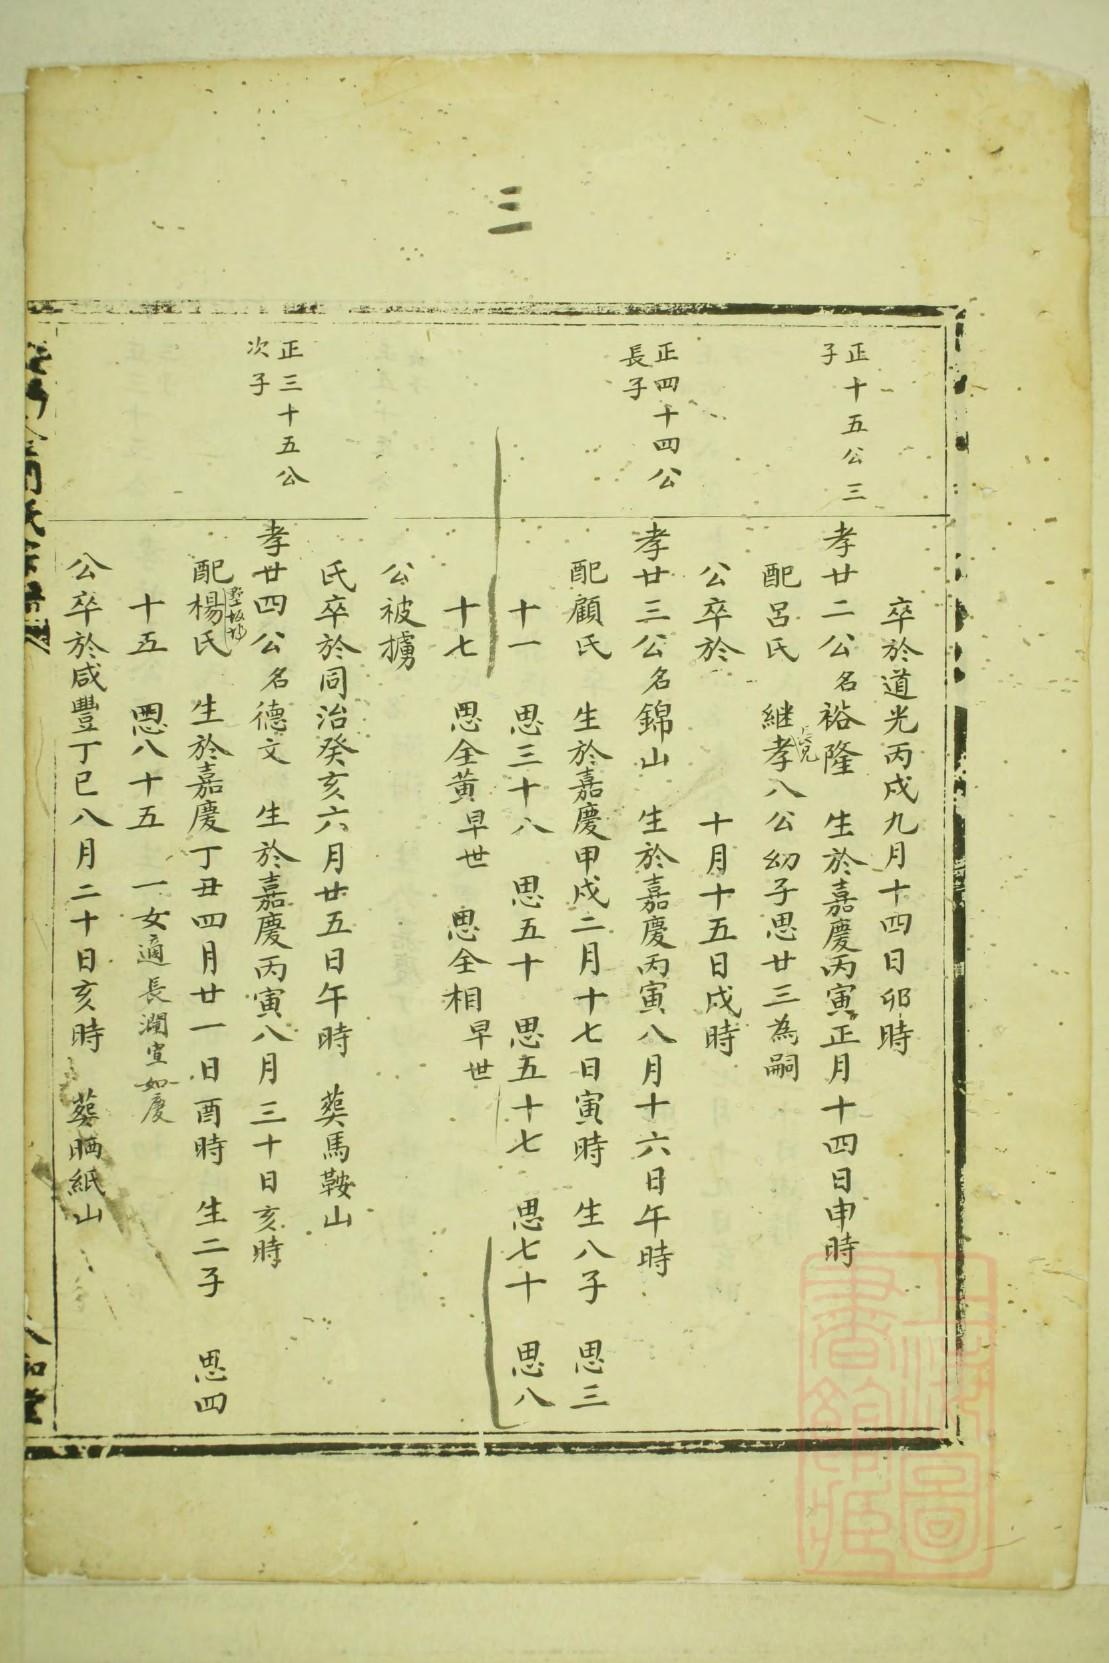 三
卒於道光丙戌九月十四日卯時
正十五公三
子
孝廿二公名裕隆 生於嘉慶丙寅正月十四日申時
配呂氏 継孝八公幼子思廿三為嗣
公卒於 十月十五日戌時
正四十四公
長子
孝廿三公名錦山 生於嘉慶丙寅八月十六日午時
配顧氏 生於嘉慶甲戌二月十七日寅時 生八子 思三
十一 思三十八 思五十 思五十七 思七十 思八
十七 思全黄早世 思全相早世
公被擄
氏卒於同治癸亥六月廿五日午時 葵馬鞍山
正三十五公
次子
孝廿四公名德文 生於嘉慶丙寅八月三十日亥時
配楊氏 生於嘉慶丁丑四月廿一日酉時 生二子 思四
十五 思八十五 一女適長澗宣如慶
公卒於咸豐丁巳八月二十日亥時 葵晒紙山
上海圖
書館藏